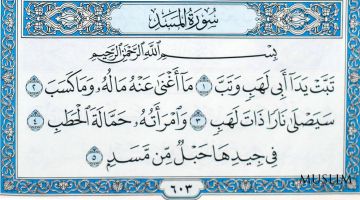 سُورَةُ المَسَدِ
بِسْمِ ٱللَّهِ ٱلرَّحْمَٰنِ ٱلرَّحِيمِ
تَبَّتْ يَدَآ أَبِى لَهَبٍ وَتَبَّ ١ مَآ أَغْنَىٰ عَنْهُ مَالُهُۥ وَمَا كَسَبَ ٢
سَيَصْلَىٰ نَارًا ذَاتَ لَهَبٍ ٣ وَٱمْرَأَتُهُۥ حَمَّالَةَ ٱلْحَطَبِ ٤
فِى جِيدِهَا حَبْلٌ مِّن مَّسَدٍۭ ٥
MUSLIM
٦٠٣